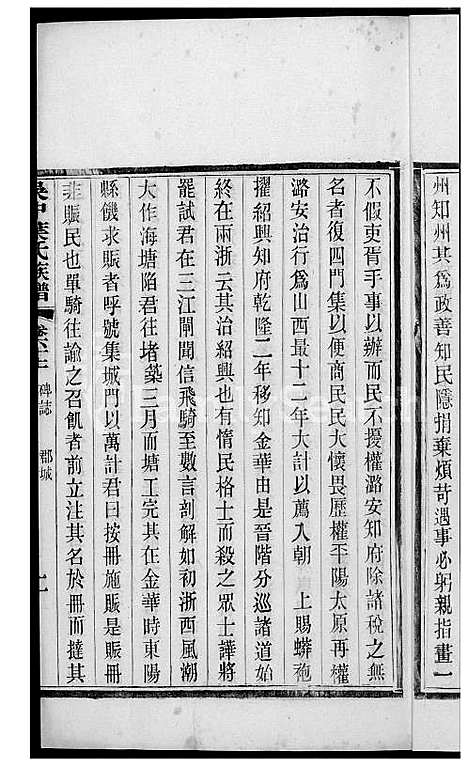 州知州其為政善知民隱捐棄煩苛遇事必躬親指畫一
不假吏胥手事以辦而民不擾權潞安知府除諸稅之無
名者復四門集以便商民民大懷畏歷權平陽太原再權
潞安治行爲山西最十二年大計以薦入朝 上賜蟒袍
擢紹興知府乾隆二年移知金華由是晉階分巡諸道始
終在兩浙云其治紹興也有惰民格士而殺之眾士譁將
罷試君在三江閘聞信飛騎至數言剖解如初浙西風潮
大作海塘陷君往堵築三月而塘工完其在金華時東陽
縣饑求賑者呼號集城門以萬計君曰按冊施賑是賑冊
非賑民也單騎往諭之召飢者前立注其名於冊而撻其
吳中葉氏族譜 碑誌 郡城